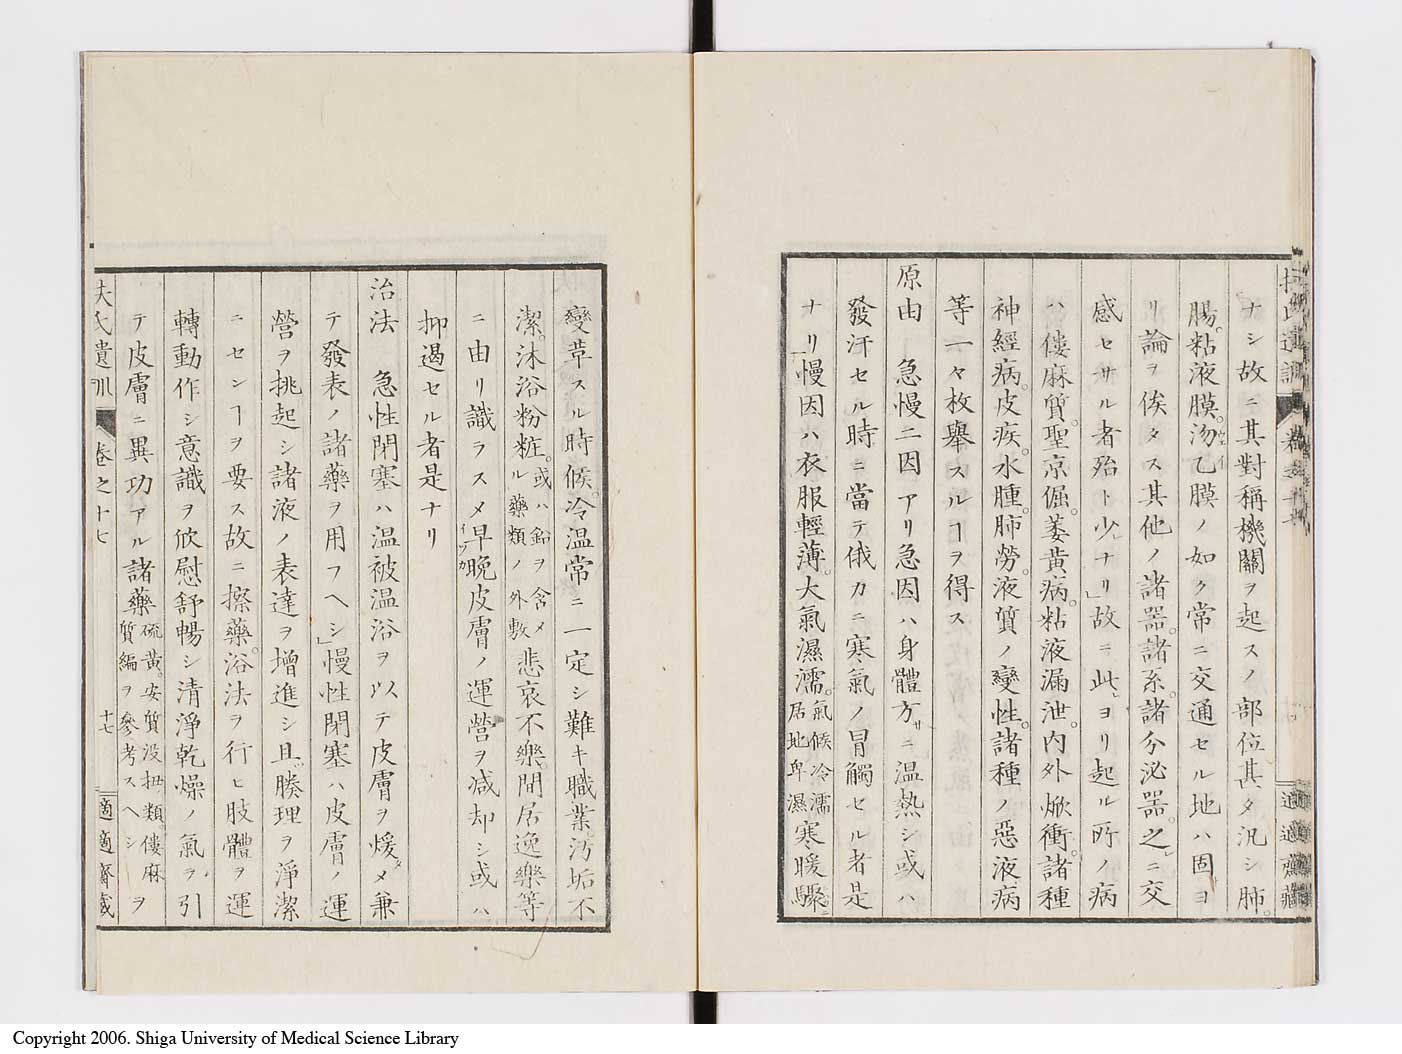 ナシ故ニ其對稱機關ヲ起スノ部位甚タ汎シ肺。
腸。粘液膜。沕乙膜ノ如ク常ニ交通セル地ハ固ヨ
リ論ヲ俟タス其他ノ諸器。諸系。諸分泌器。之ニ交
感セサル者殆ト少ナリ」故ニ此ヨリ起ル所ノ病
ハ僂麻質。聖京倔。萎黄病。粘液漏泄。内外焮衝。諸種
神經病。皮疾。水腫。肺勞。液質ノ變性。諸種ノ惡液病
等一々枚舉スルヿヲ得ス
原由 急慢二因アリ急因ハ身體方サニ温熱シ或ハ
發汗セル時ニ當テ俄カニ寒氣ノ冒觸セル者是
ナリ」慢因ハ衣服輕薄。大氣濕濡。氣候冷濡居地卑濕寒暖驟ニ
扶氏遺訓 卷之十七 適適齋藏
變革スル時候。冷温常ニ一定シ難キ職業。汚垢不
潔。沐浴粉粧。或ハ鉛ヲ含メル藥類ノ外敷悲哀不樂。間居逸樂等
ニ由リ識ラスメ早晩イツカ皮膚ノ運營ヲ减却シ或ハ
抑遏セル者是ナリ
治法 急性閉塞ハ温被温浴ヲ以テ皮膚ヲ煖メ兼
テ發表ノ諸藥ヲ用フヘシ」慢性閉塞ハ皮膚ノ運
營ヲ挑起シ諸液ノ表達ヲ增進シ且ツ腠理ヲ淨潔
ニセンヿヲ要ス故ニ擦藥。浴法ヲ行ヒ肢體ヲ運
轉動作シ意識ヲ欣慰舒暢シ清淨乾燥ノ氣ヲ引
テ皮膚ニ異功アル諸藥硫黄。安質没扭類。僂麻質編ヲ參考スヘシヲ
扶氏遺訓 卷之十七 十七 適適齋藏
Copyright 2006. Shiga University of Medical Science Library